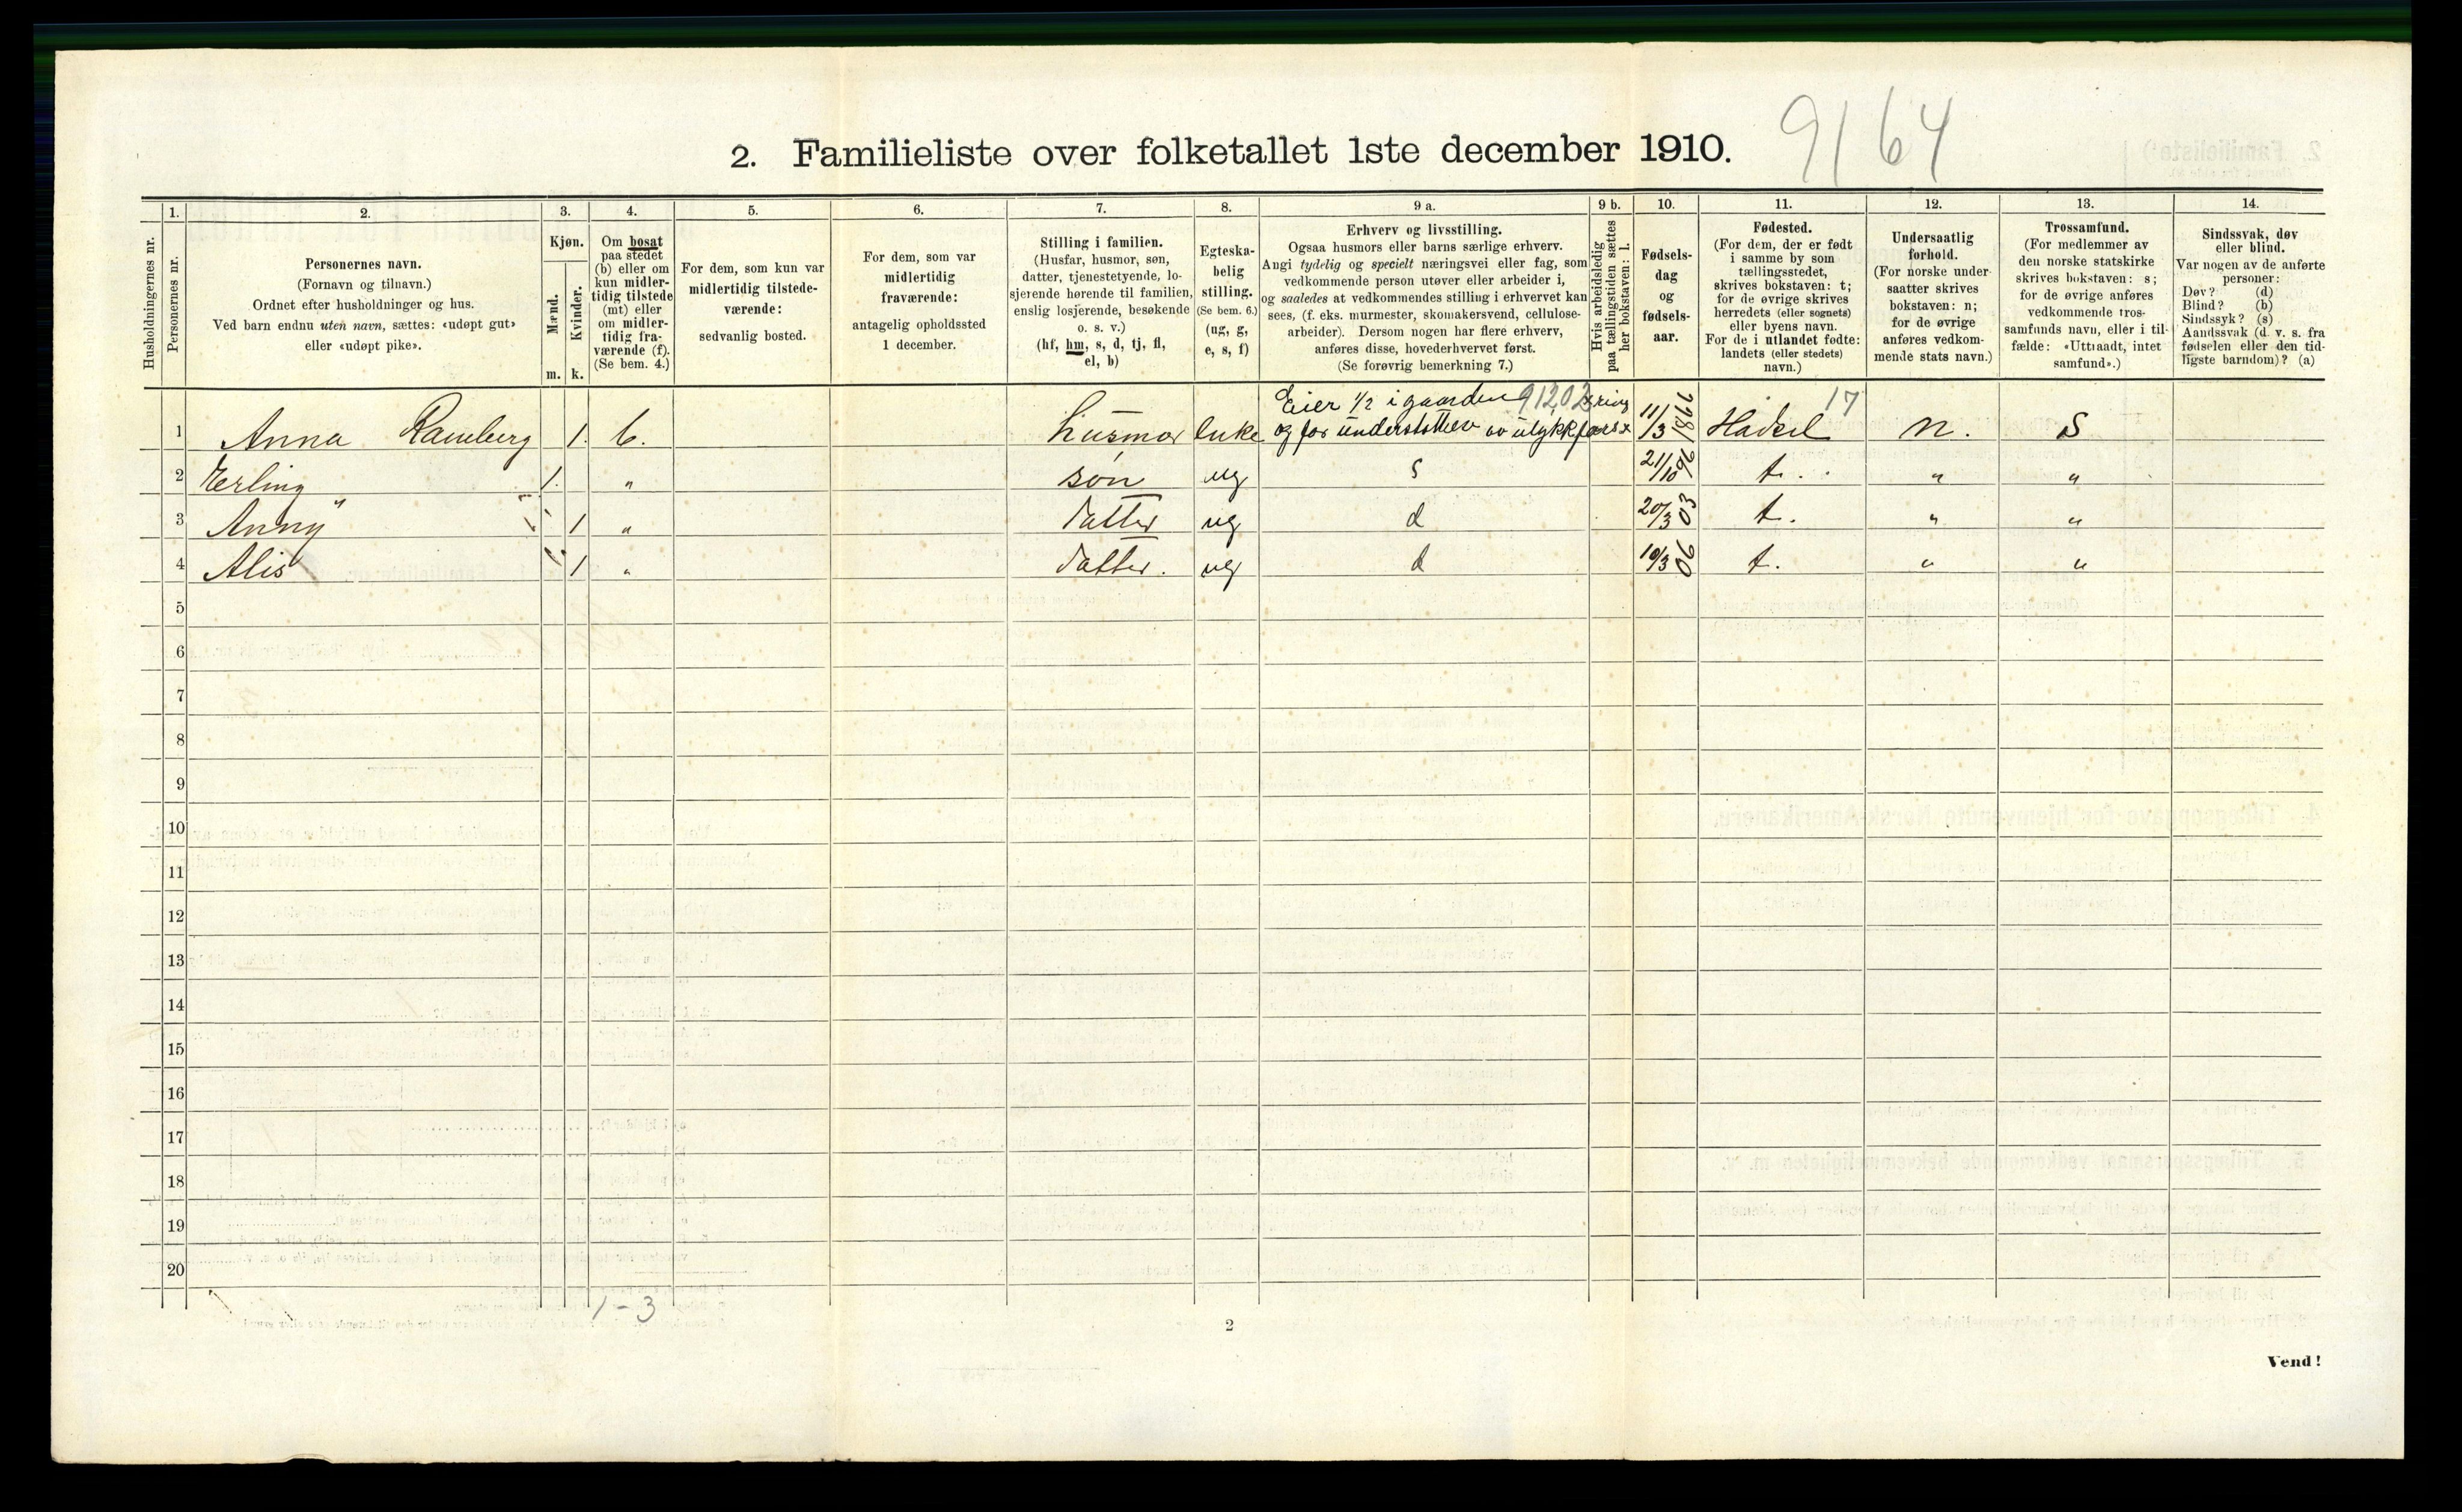 2. Familieliste over folketallet 1ste december 1910.
9164
1.
2.
3.
4.
5.
6.
7.
8.
9 a.
9 b.
10.
11.
12.
13.
14.
Husholdningernes nr.
Personernes nr.
Personernes navn.
(Fornavn og tilnavn.)
Ordnet efter husholdninger og hus.
Ved barn endnu uten navn, sættes: «udøpt gut»
eller «udøpt pike».
Kjøn.
Mænd.
Kvinder.
m.
k.
Om bosat
paa stedet
(b) eller om
kun midler-
tidig tilstede
(mt) eller
om midler-
tidig fra-
værende (f).
(Se bem. 4.)
For dem, som kun var
midlertidig tilstede-
værende:
sedvanlig bosted.
For dem, som var
midlertidig
fraværende:
antagelig opholdssted
1 december.
Stilling i familien.
(Husfar, husmor, søn,
datter, tjenestetyende, lo-
sjerende hørende til familien,
enslig losjerende, besøkende
o. s. v.)
(hf, hm, s, d, tj, fl,
el, b)
Egteska-
belig
stilling.
(Se bem. 6.)
(ug, g,
e, s, f)
Erhverv og livsstilling.
Ogsaa husmors eller barns særlige erhverv.
Angi tydelig og specielt næringsvei eller fag, som
vedkommende person utøver eller arbeider i,
og saaledes at vedkommendes stilling i erhvervet kan
sees, (f. eks. murmester, skomakersvend, cellulose-
arbeider). Dersom nogen har flere erhverv,
anføres disse, hovederhvervet først.
(Se forøvrig bemerkning 7.)
Hvis arbeidsledig
paa tællingstiden sættes
her bokstaven: l.
Fødsels-
dag
og
fødsels-
aar.
Fødested.
(For dem, der er født
i samme by som
tællingsstedet,
skrives bokstaven: t;
for de øvrige skrives
herredets (eller sognets)
eller byens navn.
For de i utlandet fødte:
landets (eller stedets)
navn.)
Undersaatlig
forhold.
(For norske under-
saatter skrives
bokstaven: n;
for de øvrige
anføres vedkom-
mende stats navn.)
Trossamfund.
(For medlemmer av
den norske statskirke
skrives bokstaven: s;
for de øvrige anføres
vedkommende tros-
samfunds navn, eller i til-
fælde: «Uttraadt, intet
samfund».)
Sindssvak, døv
eller blind.
Var nogen av de anførte
personer:
Døv? (d)
Blind? (b)
Sindssyk? (s)
Aandssvak (d. v. s. fra
fødselen eller den tid-
ligste barndom)? (a)
Eier 1/2 i gaarden 91202 17
1 Anna Ramberg 1. b. husmor enke og for 11/3 1866 n. S
2 Erling 1. " søn ug s 21/10 96 t. " "
3 Anny " 1 " datter ug d 20/3 03 t. " "
4 Alis 1 " datter. ug d 10/3 06 t. " "
5
6
7
8
9
10
11
12
13
14
15
16
17
18
19
20
1-3
2
Vend!